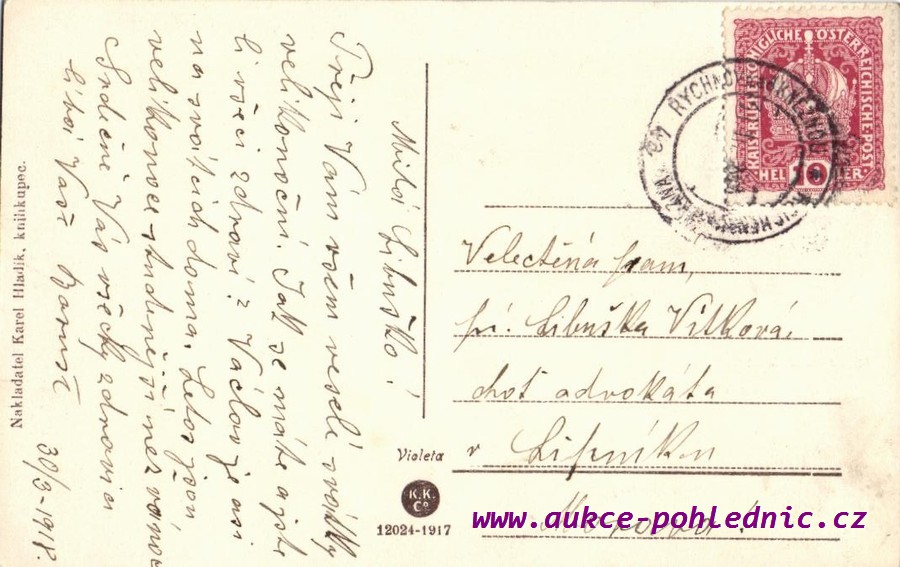 Nakladatel Karel Hladík, knihkupec.
Milá Libuško!
Přeji Vám všem veselé svátky
velikonoční. Jak se máte a jste
li všeci zdraví? Václav je asi
na svátcích doma. Letos jsou
velikonoce studenější než vánoce
Srdečně Vás všecky zdravíc
líbá Vaše
30/3-1918.
Violeta
K.K.
Co
12024-1917
KAISERLICHE KÖNIGLICHE ÖSTERREICHISCHE POST
HELLER 10
RYCHNOV
Velectěná paní,
pí. Libuška Vítková,
choť advokáta
v Lipníku
Morava!
www.aukce-pohlednic.cz